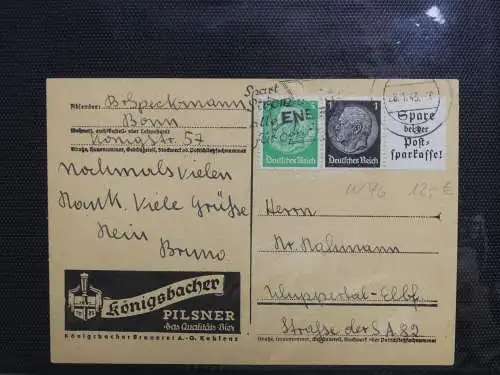 Absender: B. Speckmann
Bonn
Wohnort, auch Zustell- oder Leitpostamt
Königstr. 57
Straße, Hausnummer, Gebäudeteil, Stockwerk od. Postschließfachnummer
nochmals vielen
Dank. Viele Grüße
Dein
Bruno
Königsbacher
PILSNER
das Qualitäts-Bier
Königsbacher Brauerei A.-G. Koblenz
Spart
ENE
Deutsches Reich
1
1
Deutsches Reich
Spare
bei der
Post-
sparkasse!
W76
12,- €
Herrn
Wuppertal-Elbf.
Straße der SA 82
Straße, Hausnummer, Gebäudeteil, Stockwerk oder Postschließfachnummer